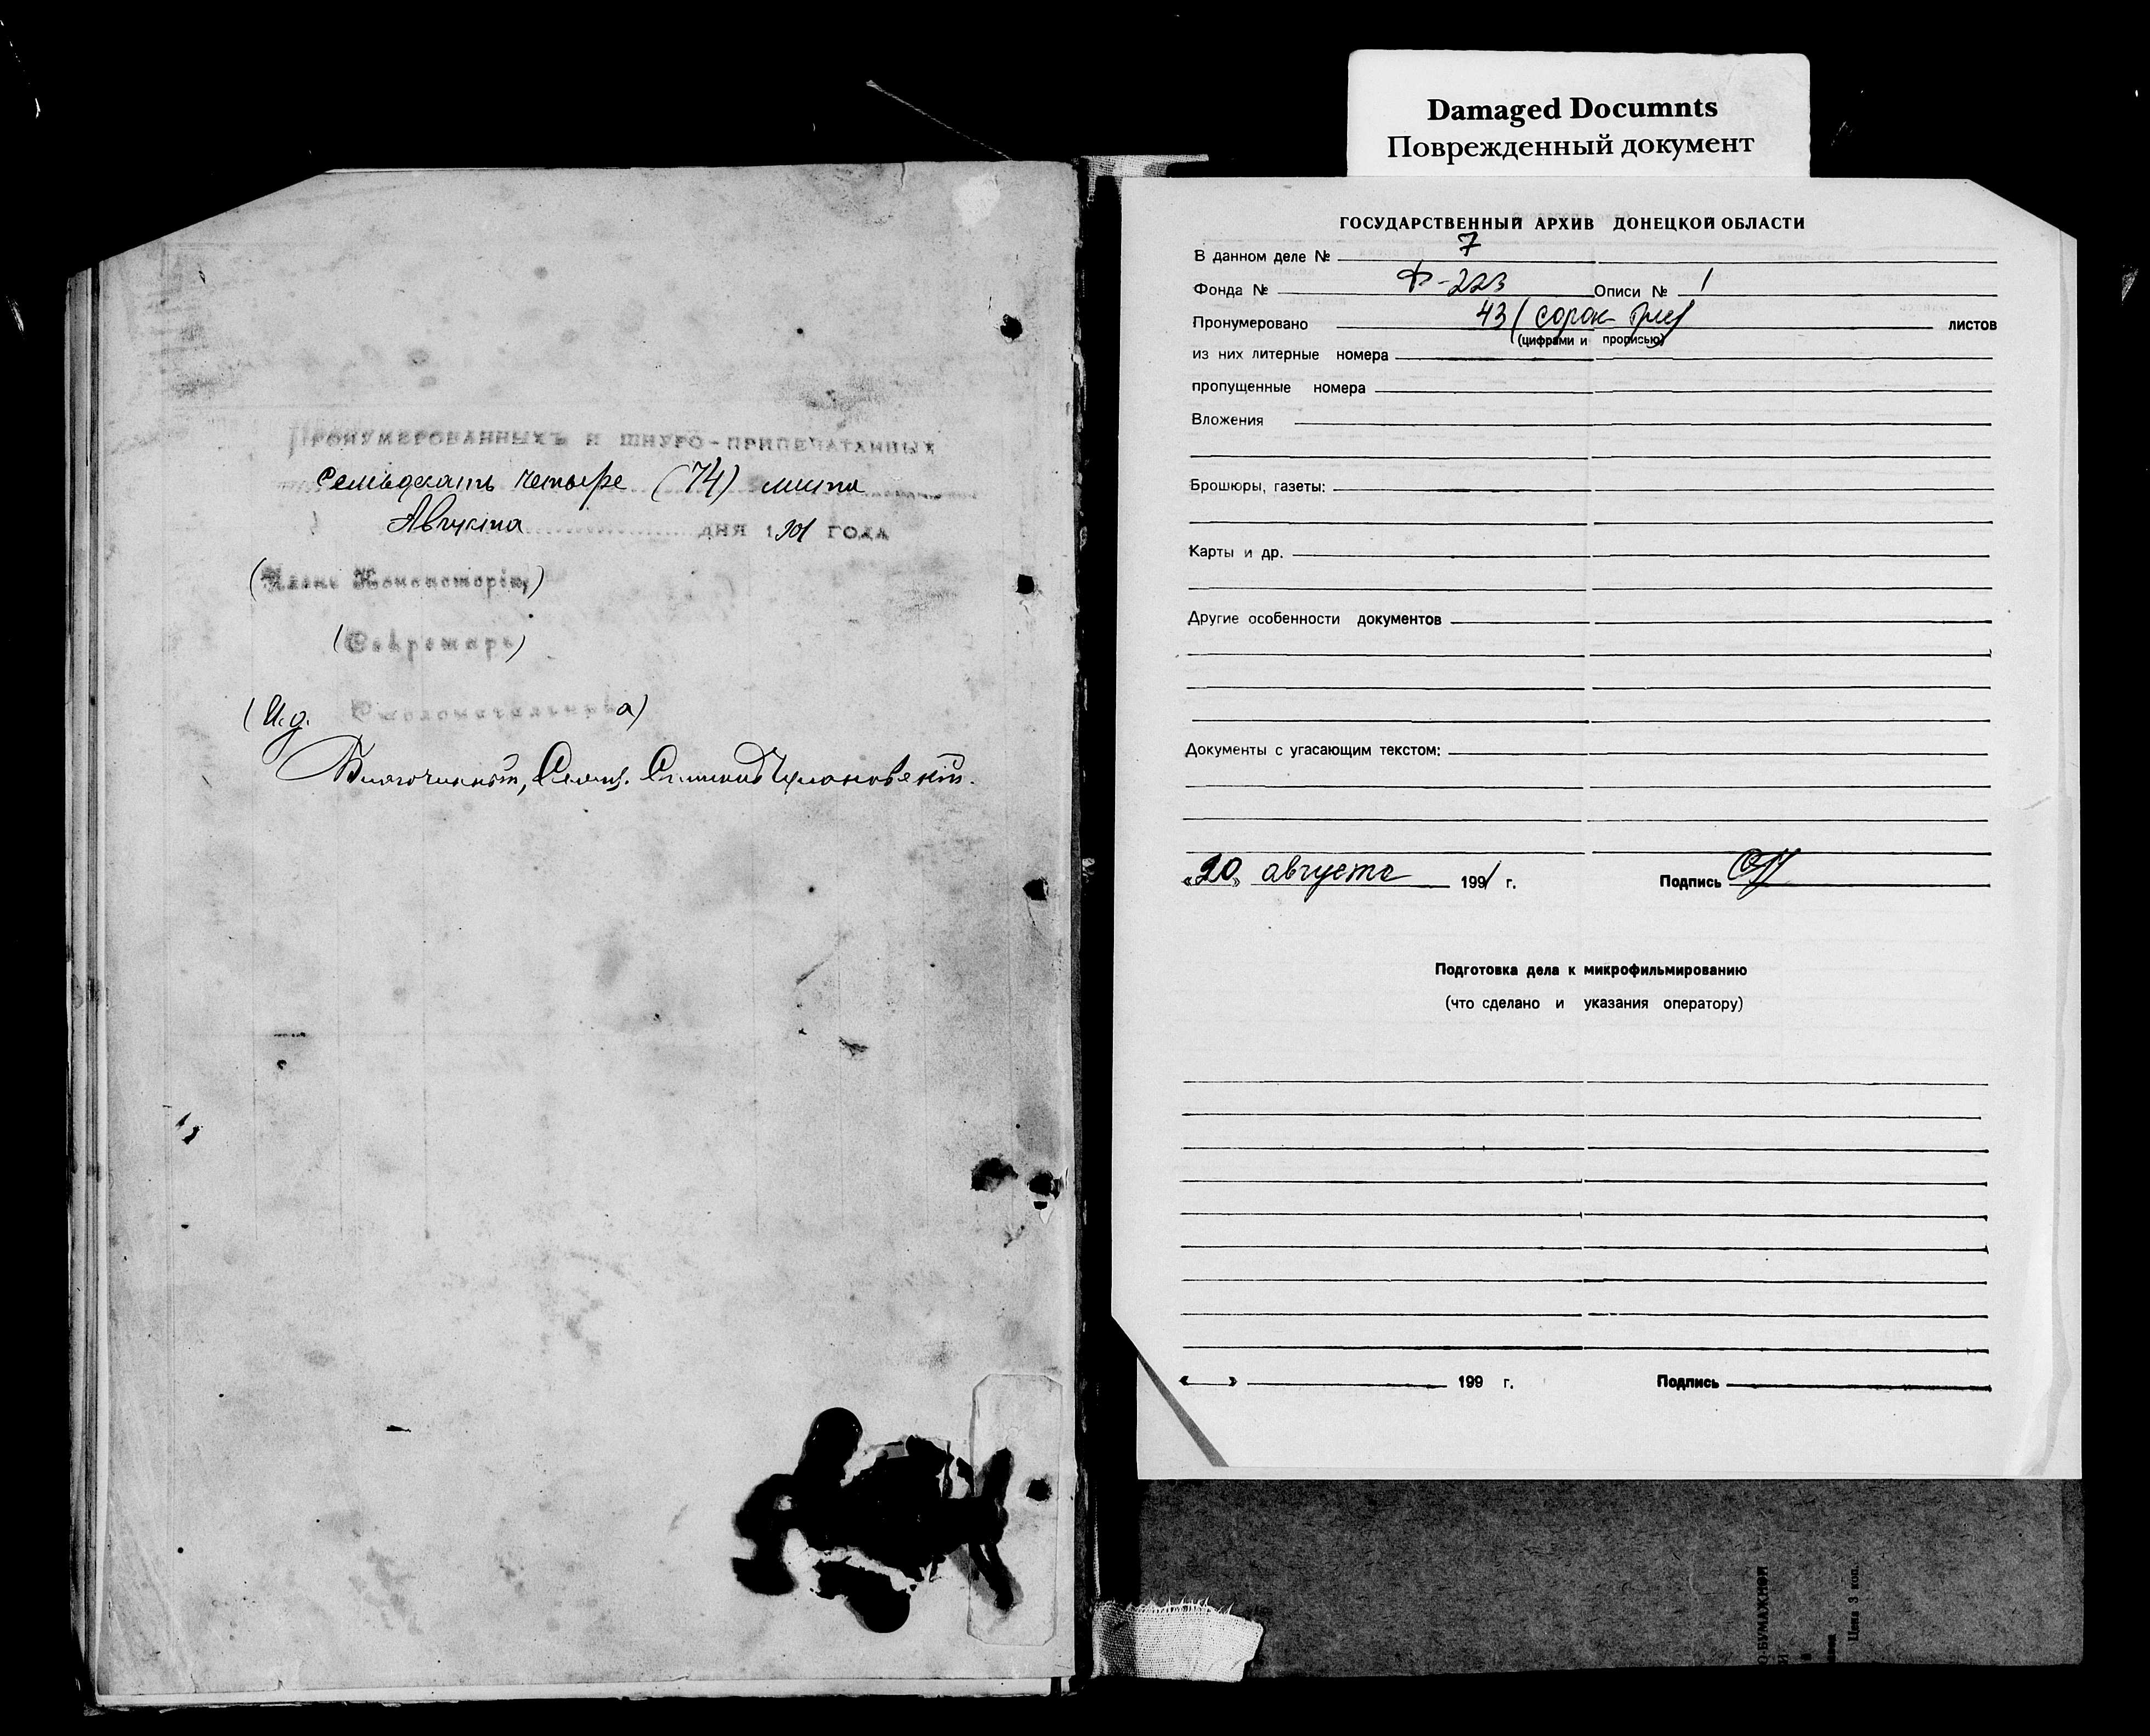 Damaged Documnts
Поврежденный документ
ПРОНУМЕРОВАННЫХЪ И ШНУРО-ПРИПЕЧАТАННЫХ
семьдесять четыре (74) листа
Августа ДНЯ 1901 ГОДА
(Членъ Консисторіи)
(Секретарь)
(И. д. Столоначальника)
Благочинный, Свящ. Симеонъ
ГОСУДАРСТВЕННЫЙ АРХИВ ДОНЕЦКОЙ ОБЛАСТИ
В данном деле № 7
Фонда № Ф-223 Описи № 1
Пронумеровано 43 (сорок три) листов
(цифрами и прописью)
из них литерные номера
пропущенные номера
Вложения
Брошюры, газеты:
Карты и др.
Другие особенности документов
Документы с угасающим текстом:
«20» августа 1991 г. Подпись
Подготовка дела к микрофильмированию
(что сделано и указания оператору)
« » 199 г. Подпись
Цена 3 коп.